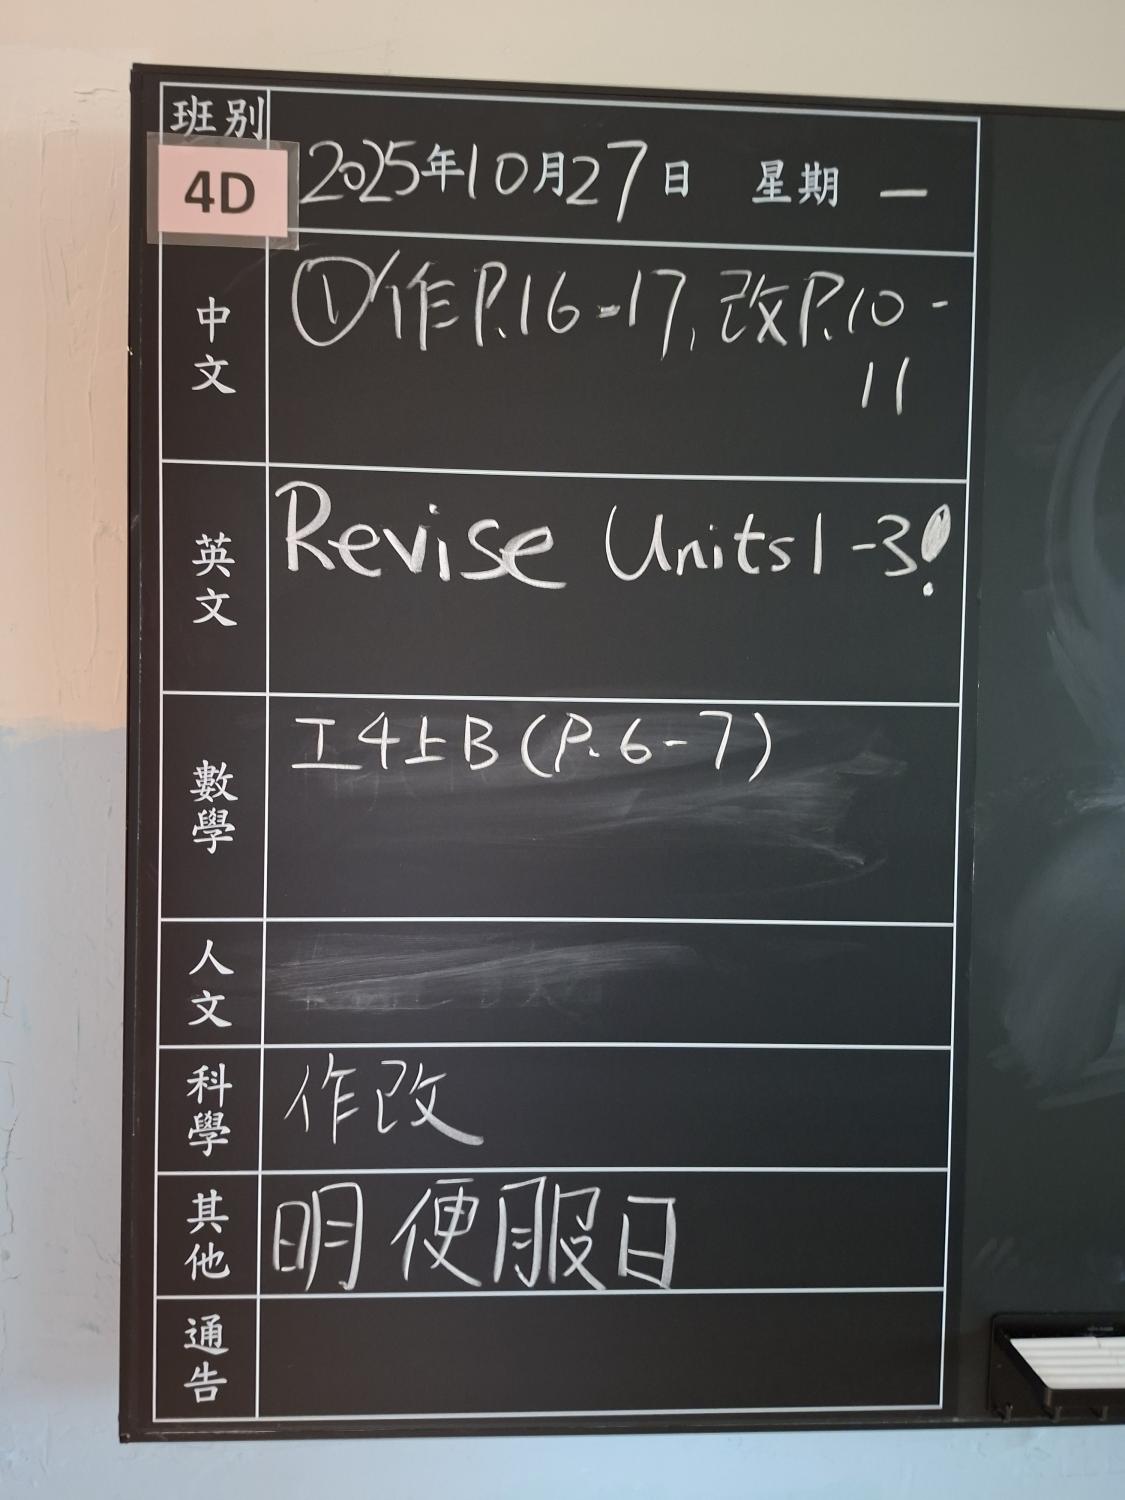 班別
4D
2025年10月27日 星期 一
中文
①作P.16-17, 改P.10-
11
英文
Revise Units 1-3!
數學
工4上B (P.6-7)
人文
科學
作改
其他
明 便服日
通告